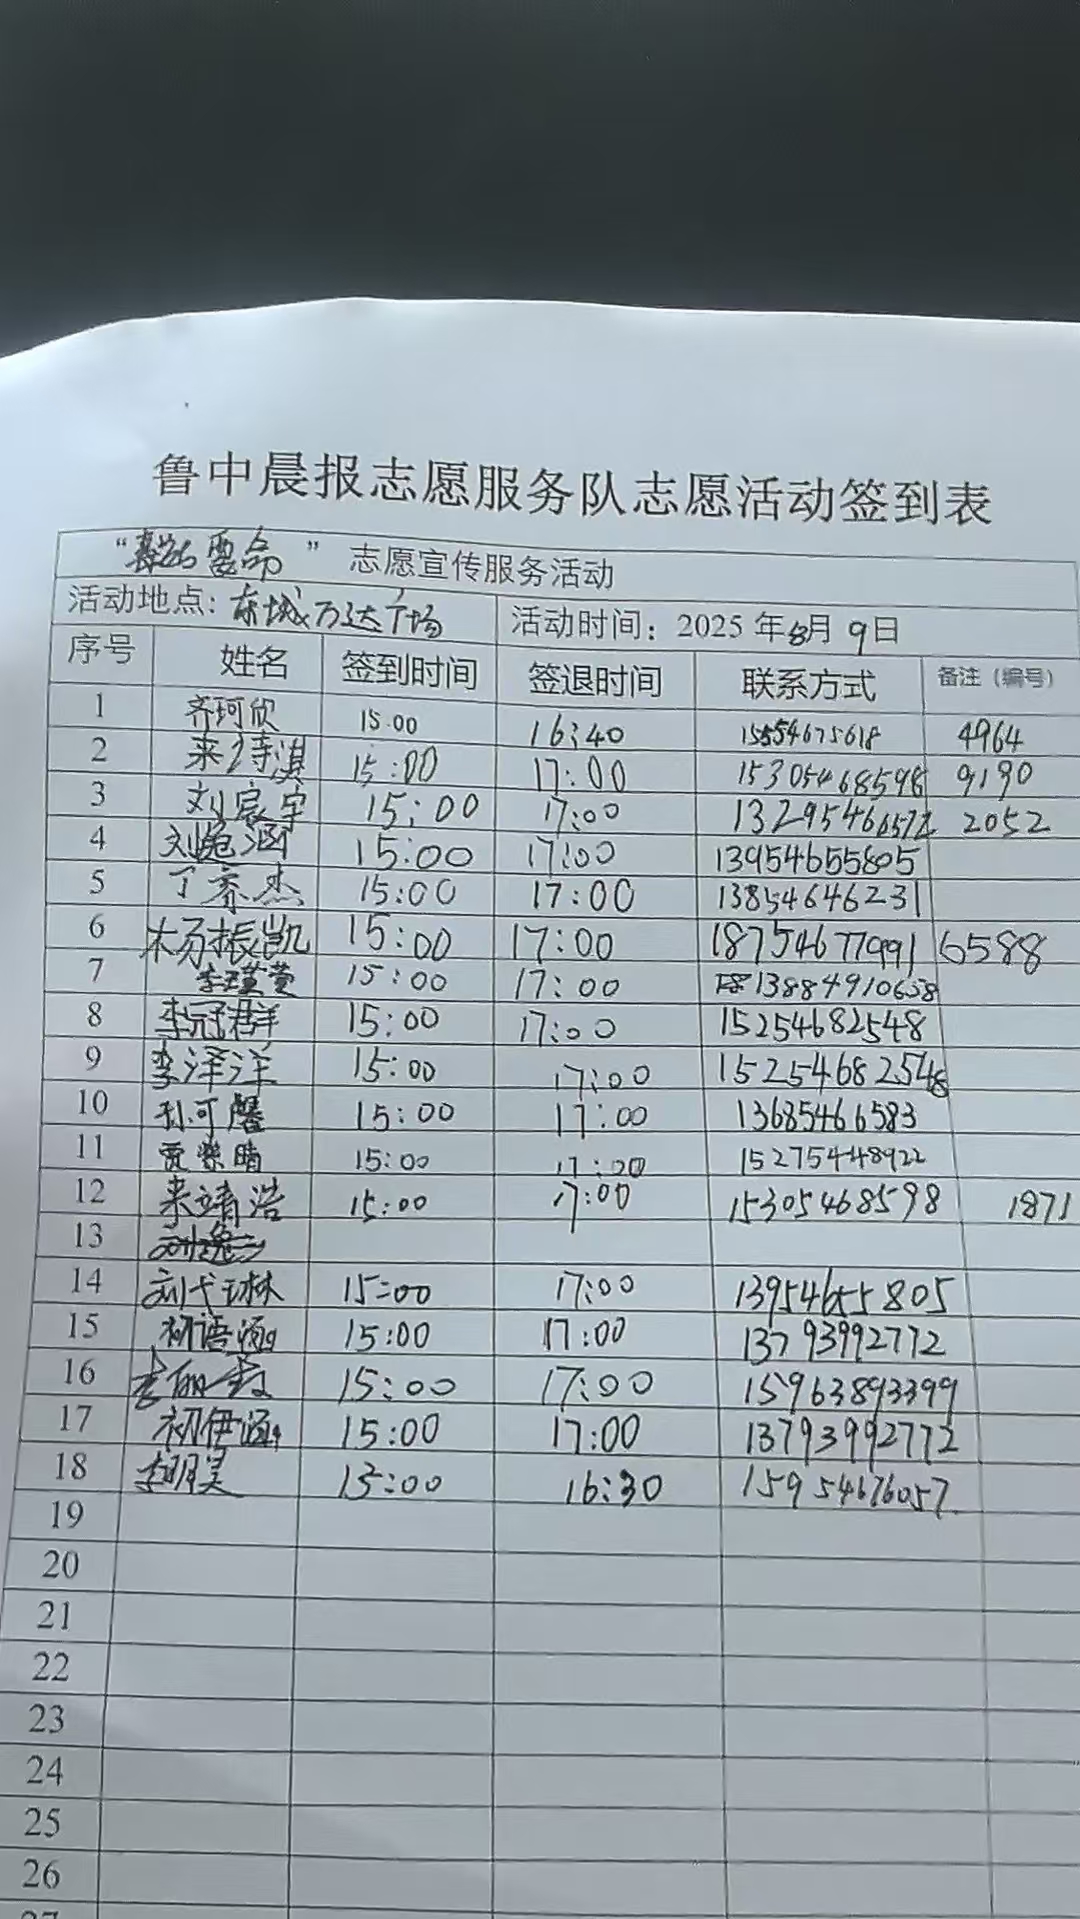 鲁中晨报志愿服务队志愿活动签到表
“ ” 志愿宣传服务活动
活动地点：东城万达广场 活动时间：2025 年8月9日
序号 姓名 签到时间 签退时间 联系方式 备注（编号）
1 齐珂欣 15:00 16:40 15554675618 4964
2 来诗淇 15:00 17:00 15305468598 9190
3 刘宸宇 15:00 17:00 13295466572 2052
4 刘菀涵 15:00 17:00 13954655805
5 丁睿杰 15:00 17:00 13854646231
6 杨振凯 15:00 17:00 18754677991 6588
7 李瑾萱 15:00 17:00 13884910658
8 李冠群 15:00 17:00 15254682548
9 李泽洋 15:00 17:00 15254682548
10 孙可馨 15:00 17:00 13685466583
11 贾紫晴 15:00 17:00 15275448922
12 来靖浩 15:00 17:00 15305468598 1871
13
14 刘弋琳 15:00 17:00 13954655805
15 初语涵 15:00 17:00 13793992772
16 李丽霞 15:00 17:00 15963893399
17 初伊涵 15:00 17:00 13793992772
18 李明昊 15:00 16:30 15954676057
19
20
21
22
23
24
25
26
27